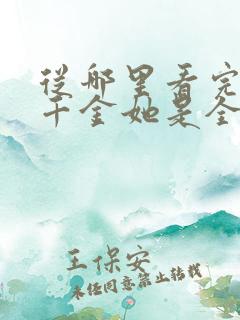 从哪里看完
千金她是全
王保安
未经同意禁止转载